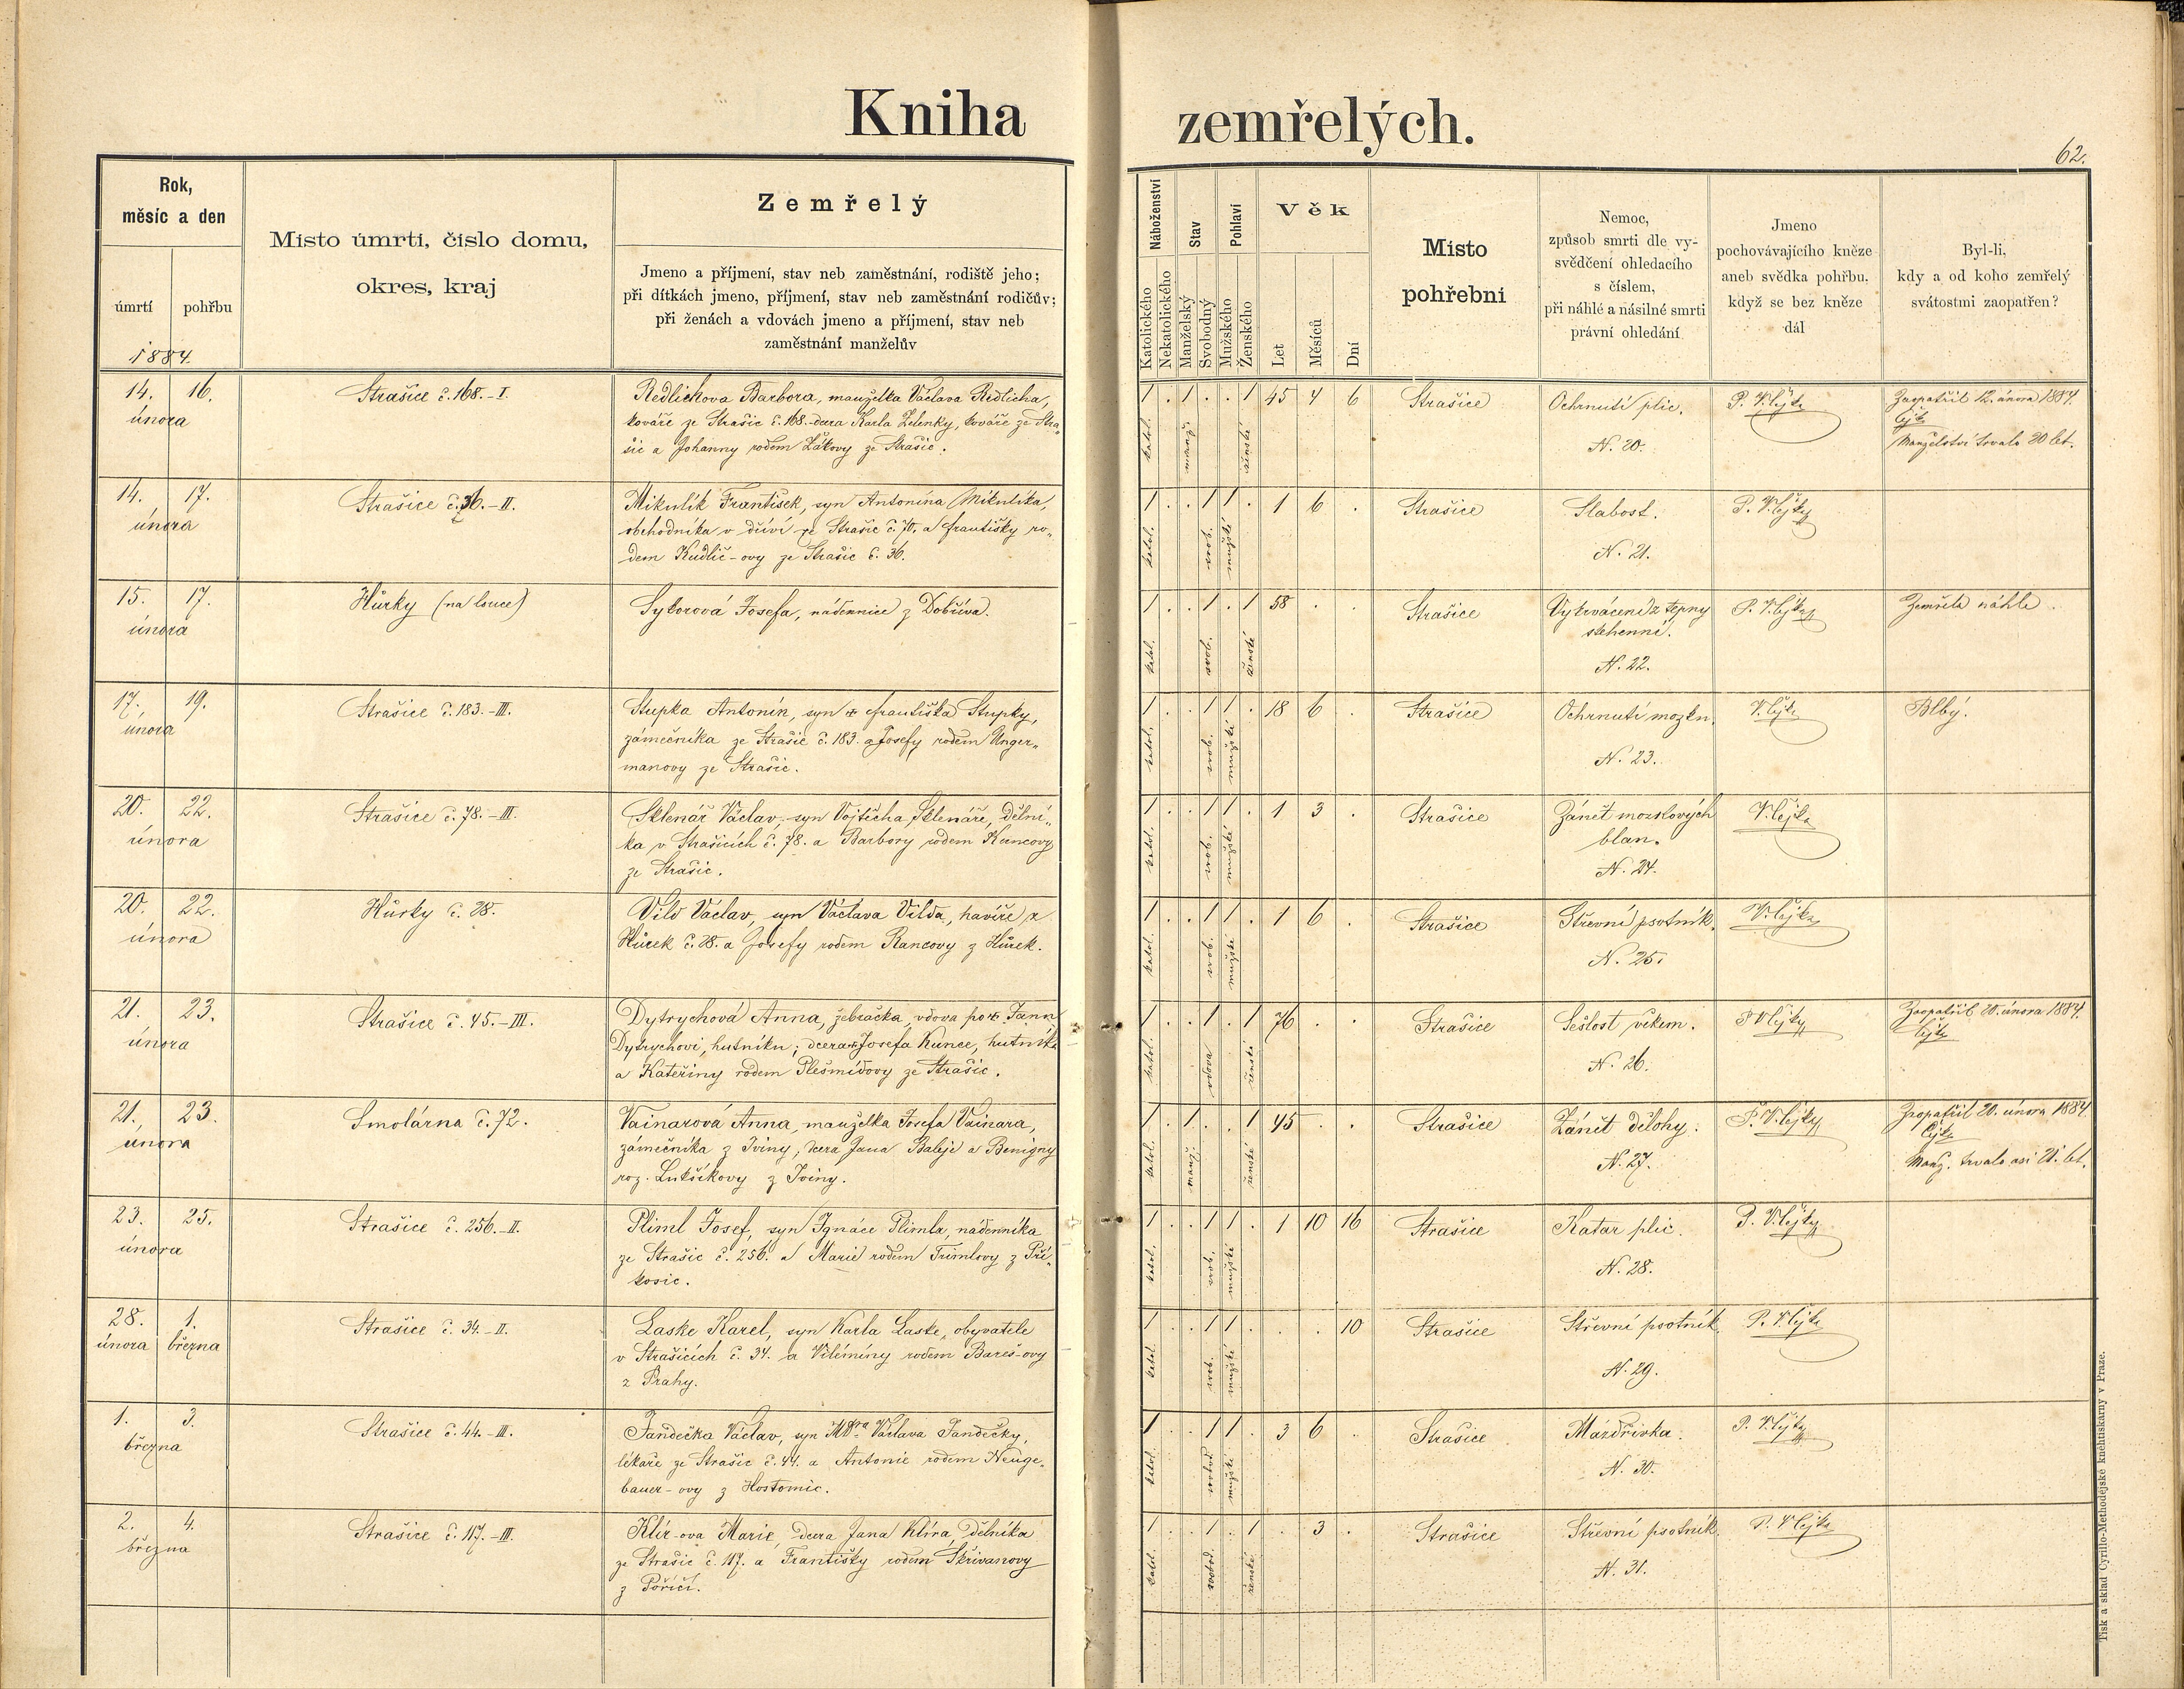 Kniha zemřelých.
62.
Rok,
měsíc a den
úmrtí
pohřbu
1884.
Místo úmrtí, číslo domu,
okres, kraj
Zemřelý
Jmeno a příjmení, stav neb zaměstnání, rodiště jeho;
při dítkách jmeno, příjmení, stav neb zaměstnání rodičův;
při ženách a vdovách jmeno a příjmení, stav neb
zaměstnání manželův
Náboženství
Katolického
Nekatolického
Stav
Manželský
Svobodný
Pohlaví
Mužského
Ženského
Věk
Let
Měsíců
Dní
Místo
pohřební
Nemoc,
způsob smrti dle vy-
svědčení ohledacího
s číslem,
při náhlé a násilné smrti
právní ohledání
Jmeno
pochovávajícího kněze
aneb svědka pohřbu,
když se bez kněze
dál
Byl-li,
kdy a od koho zemřelý
svátostmi zaopatřen?
14. 16.
února
Strašice č. 168.-I.
Redlichova Barbora, manželka Václava Redlicha,
kováře ze Strašic č. 168. dcera Karla Zelenky, kováře ze Stra„
šic a Johanny rodem Žákovy ze Strašic.
1 . 1 . . 1 45 4 6
katol. manž. ženské
Strašice
Ochrnutí plic.
N. 20.
P. V. Cejka
Zaopatřil 12. února 1884.
Cejka
Manželství trvalo 20 let.
14. 17.
února
Strašice č. 36.-II.
Mikulík František, syn Antonína Mikulíka,
obchodníka v dříví ze Strašic č. 70. a Františky ro„
dem Kudlič-ovy ze Strašic č. 36.
1 . . 1 1 . 1 6 .
katol. svob. mužské
Strašice
Slabost.
N. 21.
P. V. Cejka
15. 17.
února
Hůrky (na louce)
Sykorová Josefa, nádennice z Dobříva.
1 . . 1 . 1 58 . .
katol. svob. ženské
Strašice
Vykrvácení z tepny
stehenní.
N. 22.
P. V. Cejka
Zemřela náhle.
17. 19.
února
Strašice č. 183.-III.
Stupka Antonín, syn Františka Stupky,
zámečníka ze Strašic č. 183. a Josefy rodem Unger„
manovy ze Strašic.
1 . . 1 1 . 18 6 .
katol. svob. mužské
Strašice
Ochrnutí mozku.
N. 23.
V. Cejka
Blbý.
20. 22.
února
Strašice č. 78.-III.
Sklenář Václav, syn Vojtěcha Sklenáře, dělní„
ka v Strašicích č. 78. a Barbory rodem Kuncovy
ze Strašic.
1 . . 1 1 . 1 3 .
katol. svob. mužské
Strašice
Zánět mozkových
blan.
N. 24.
V. Cejka
20. 22.
února
Hůrky č. 28.
Vild Václav, syn Václava Vilda, havíře z
Hůrek č. 28. a Josefy rodem Rancovy z Hůrek.
1 . . 1 1 . 1 6 .
katol. svob. mužské
Strašice
Střevní psotník.
N. 25.
V. Cejka
21. 23.
února
Strašice č. 45.-III.
Dytrychová Anna, žebračka, vdova po Janu
Dytrychovi, hutníku; dcera Josefa Kunce, hutníka
a Kateřiny rodem Plešmídovy ze Strašic.
1 . . 1 . 1 76 . .
katol. vdova ženské
Strašice
Sešlost věkem.
N. 26.
P V Cejka
Zaopatřil 20. února 1884.
Cejka
21. 23.
února
Smolárna č. 72.
Vainarová Anna, manželka Josefa Vainara,
zámečníka z Iviny, dcera Jana Baleje a Benigny
roz. Lukšíkovy z Iviny.
1 . 1 . . 1 45 . .
katol. manž. ženské
Strašice
Zánět dělohy.
N. 27.
P. V. Cejka
Zaopatřil 20. února 1884.
Cejka
Manž. trvalo asi 21. let.
23. 25.
února
Strašice č. 256.-II.
Pliml Josef, syn Ignáce Plimla, nádenníka
ze Strašic č. 256. a Marie rodem Trimlovy z Pří„
kosic.
1 . . 1 1 . 1 10 16
katol. svob. mužské
Strašice
Katar plic.
N. 28.
P. V. Cejka
28. 1.
února března
Strašice č. 34.-II.
Laske Karel, syn Karla Laske, obyvatele
v Strašicích č. 34. a Vilémíny rodem Bareš-ovy
z Prahy.
1 . . 1 1 . . . 10
katol. svob. mužské
Strašice
Střevní psotník.
N. 29.
P. V. Cejka
1. 3.
března
Strašice č. 44.-III.
Jandečka Václav, syn MDra Václava Jandečky,
lékaře ze Strašic č. 44. a Antonie rodem Neuge„
bauer-ovy z Hostomic.
1 . . 1 1 . 3 6 .
katol. svobod. mužské
Strašice
Mázdřivka.
N. 30.
P. V. Cejka
2. 4.
března
Strašice č. 117.-III.
Klír-ova Marie, dcera Jana Klíra, dělníka
ze Strašic č. 117. a Františky rodem Skřivanovy
z Poříčí.
1 . . 1 . 1 . 3 .
katol. svobod. ženské
Strašice
Střevní psotník.
N. 31.
P. V. Cejka
Tisk a sklad Cyrillo-Methodějské knihtiskárny v Praze.